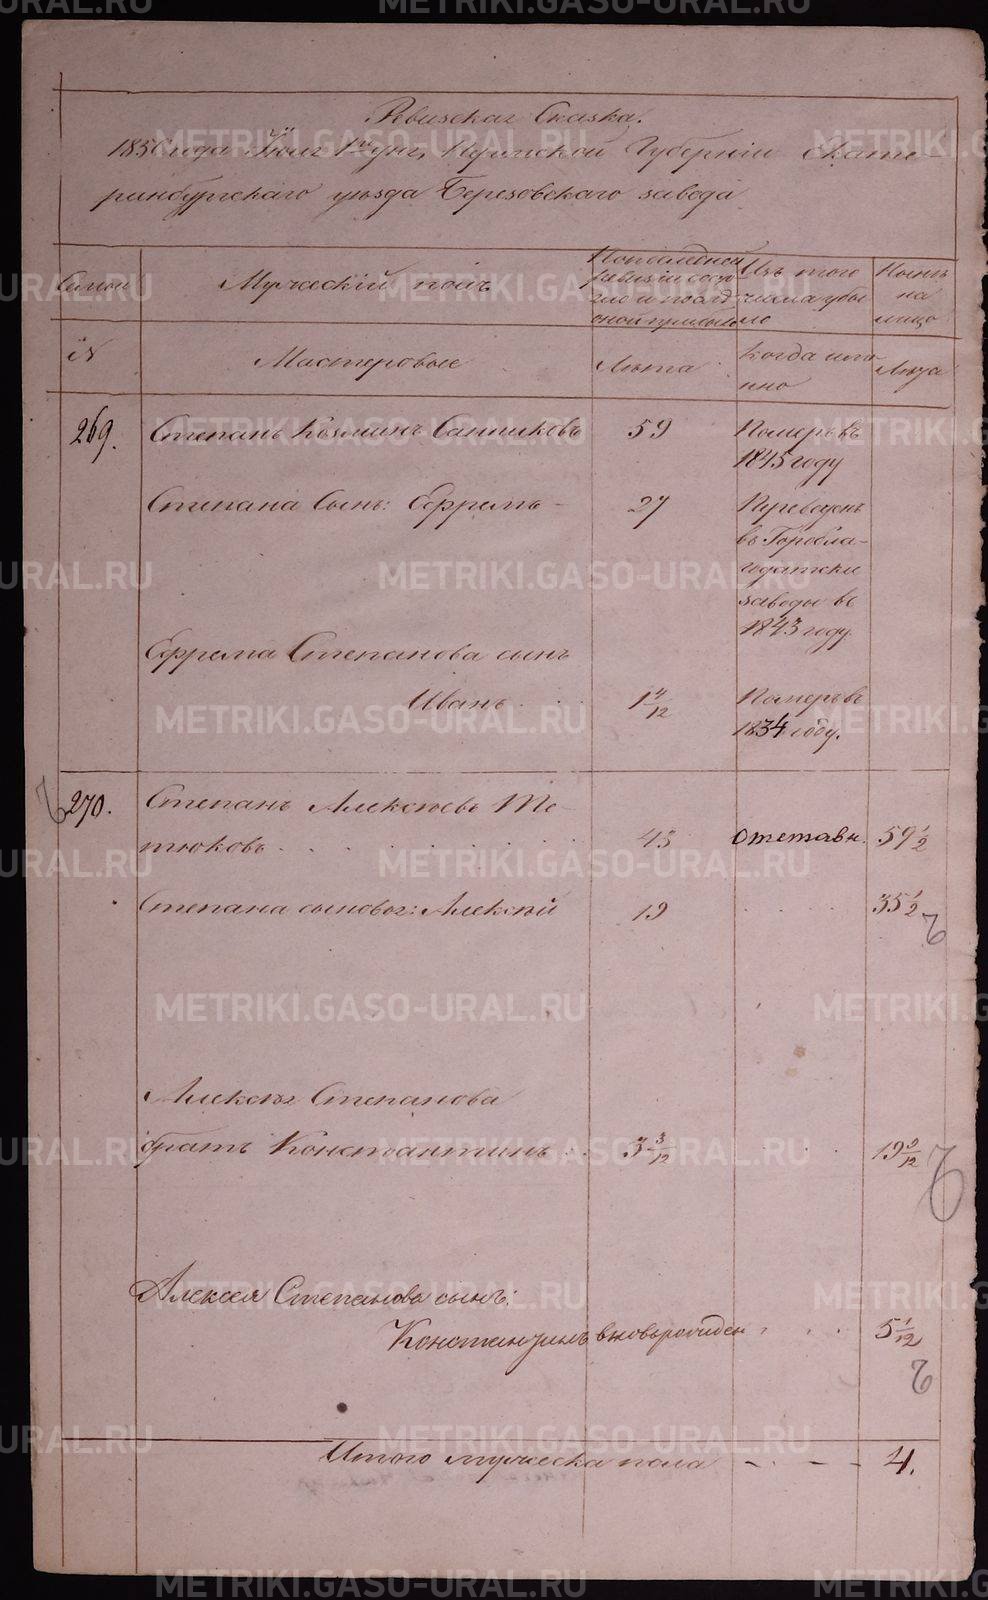 Ревизская Сказка.
1850 года Июля 1го дня, Пермской Губернии Екате-
ринбургскаго уезда Березовскаго завода
Семьи
Мужескій полъ
По последней
ревизіи состо
яло и после
оной прибыло
Изъ того
числа убы
ло
Ныне
на
лицо
№
Мастеровые
Лета
Когда име
нно
Лета
269.
Степанъ Козминъ Санниковъ
59
Померъ въ
1845 году
Степана Сынъ: Ефремъ -
27
Переведенъ
въ Горобла-
годатскіе
заводы въ
1843 году.
Ефрема Степанова сынъ
Иванъ
1 4/12
Померъ въ
1834 году.
270.
Степанъ Алексеевъ Те-
тюковъ
43
отставн.
59 1/2
Степана сыновья: Алексей
19
35 1/2
Алексея Степанова
братъ Константинъ
3 3/12
19 9/12
Алексея Степанова сынъ:
Константинъ вновьрожден
5 1/12
Итого мужеска пола - - - -
4.
METRIKI.GASO-URAL.RU